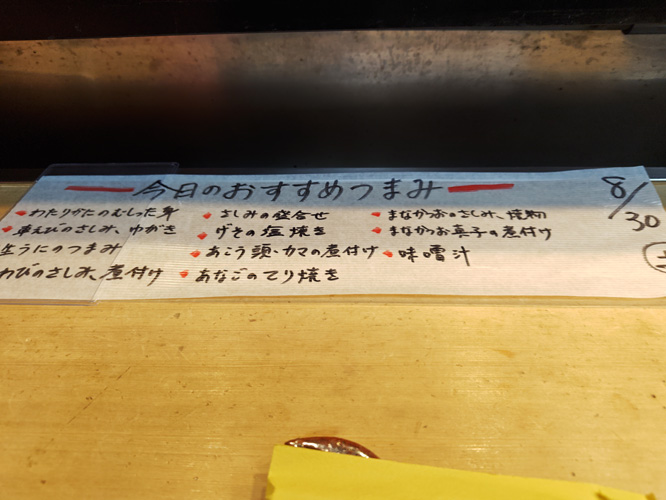 今日のおすすめつまみ
8/30
わたりがにのむしった身
車えびのさしみ、ゆがき
生うにのつまみ
わびのさしみ、煮付け
さしみの盛合せ
げその塩焼き
あこう頭・カマの煮付け
あなごのてり焼き
まながつおのさしみ、焼物
まながつお真子の煮付け
味噌汁